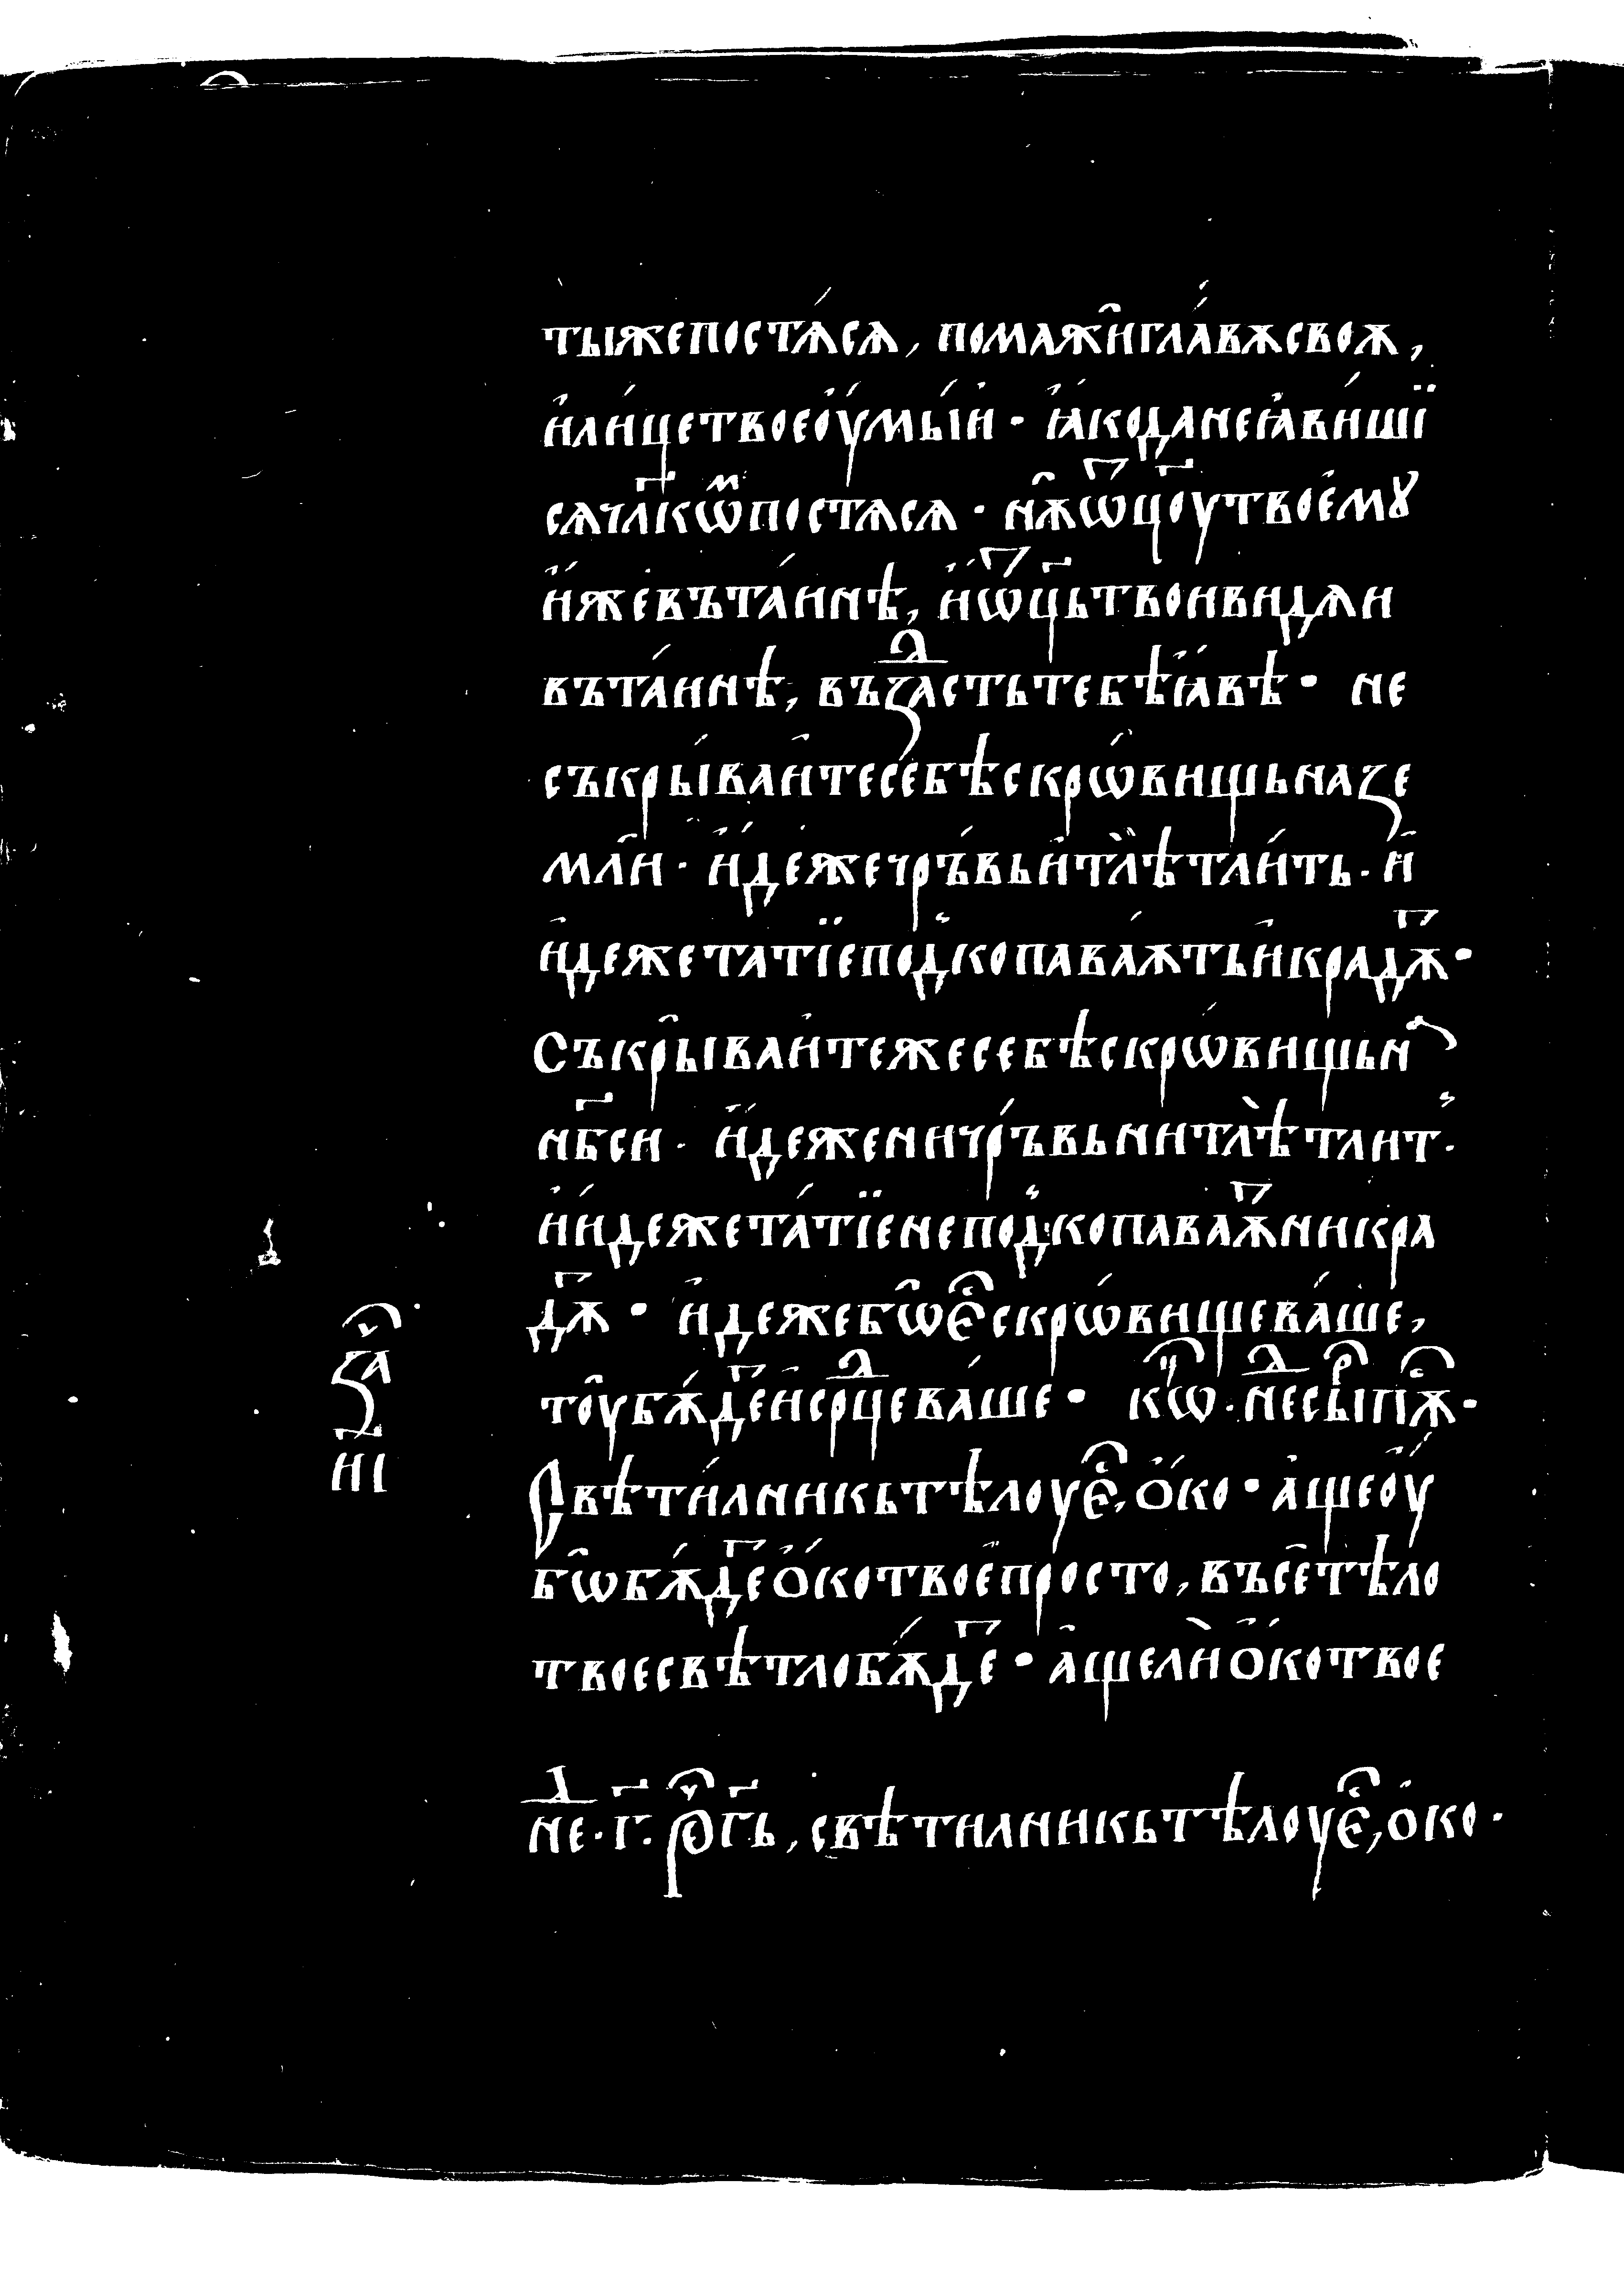 тыжепостѧ́сѧ, помажи҆гла́вѫсвоѫ,
и҆ли́цетвоеоу҆мы́и҆ · ꙗ҆́коданеꙗ҆ви́шї
сѧчл҃кѡⷨпостѧсѧ · нѫ̑ѿц҃оутвоемꙋ
и҆́жевъта́инѣ, и҆ѿц҃ьтвоивидѧи
въта́инѣ, въꙁⷣастьтебѣꙗ҆́вѣ · не
съкры́ваи҆тесебѣскрѡ́вищьнаꙁе
мли҆ · и҆́дежечръ́вьи҆тлѣ̀тли́ть · и҆
и҆дежетатїеподⸯкопава́ѫтьи҆крадѫⷮ ·
Съкрываи҆тежесебѣскрѡ́вищьнⷶ
нб҃си · и҆́деженичръ́вьнитлѣ̀тлитⸯ ·
и҆и́дежета́тїенеподⸯкопаваѫⷮникра
дѫⷮ · и҆дежебѡ̑еⷭ҇скрѡ́вищева́ше,
тоубѫ́деⷮи҆срⷣцева́ше · кѡⷰ · неⷣсырⷬпѫⷭ ·
Свѣти́лникьтѣлоуеⷭ҇, ѻ҆́ко · а҆щеоу҆
бѡбѫ́деⷮѻ҆́котвоепросто, въсетѣло
твоесвѣтлобѫ́деⷮ · а҆щелиѻ҆́котвое
ꙁаⷱ҇
н҃і
неⷣ · г҃ · рⷱ҇ег҃ь, свѣтилникьтѣлоуеⷭ҇, ѻ҆ко ·